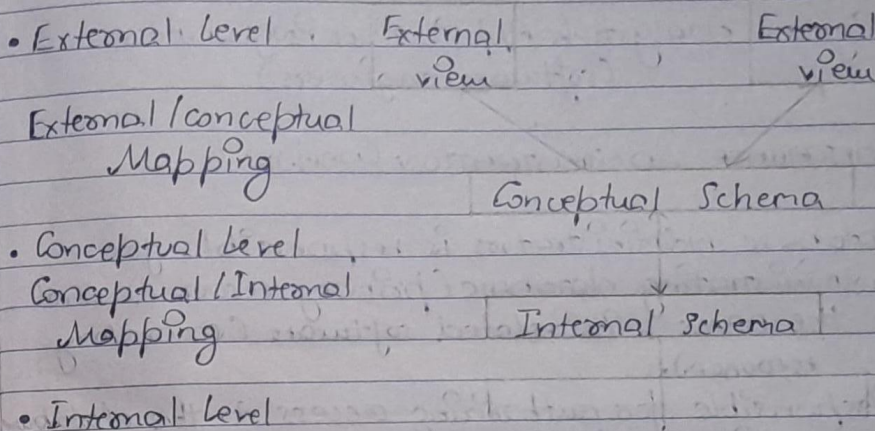 • External Level External External
view view
External / conceptual
Mapping
Conceptual Schema
• Conceptual Level
Conceptual / Internal
Mapping Internal Schema
• Internal Level